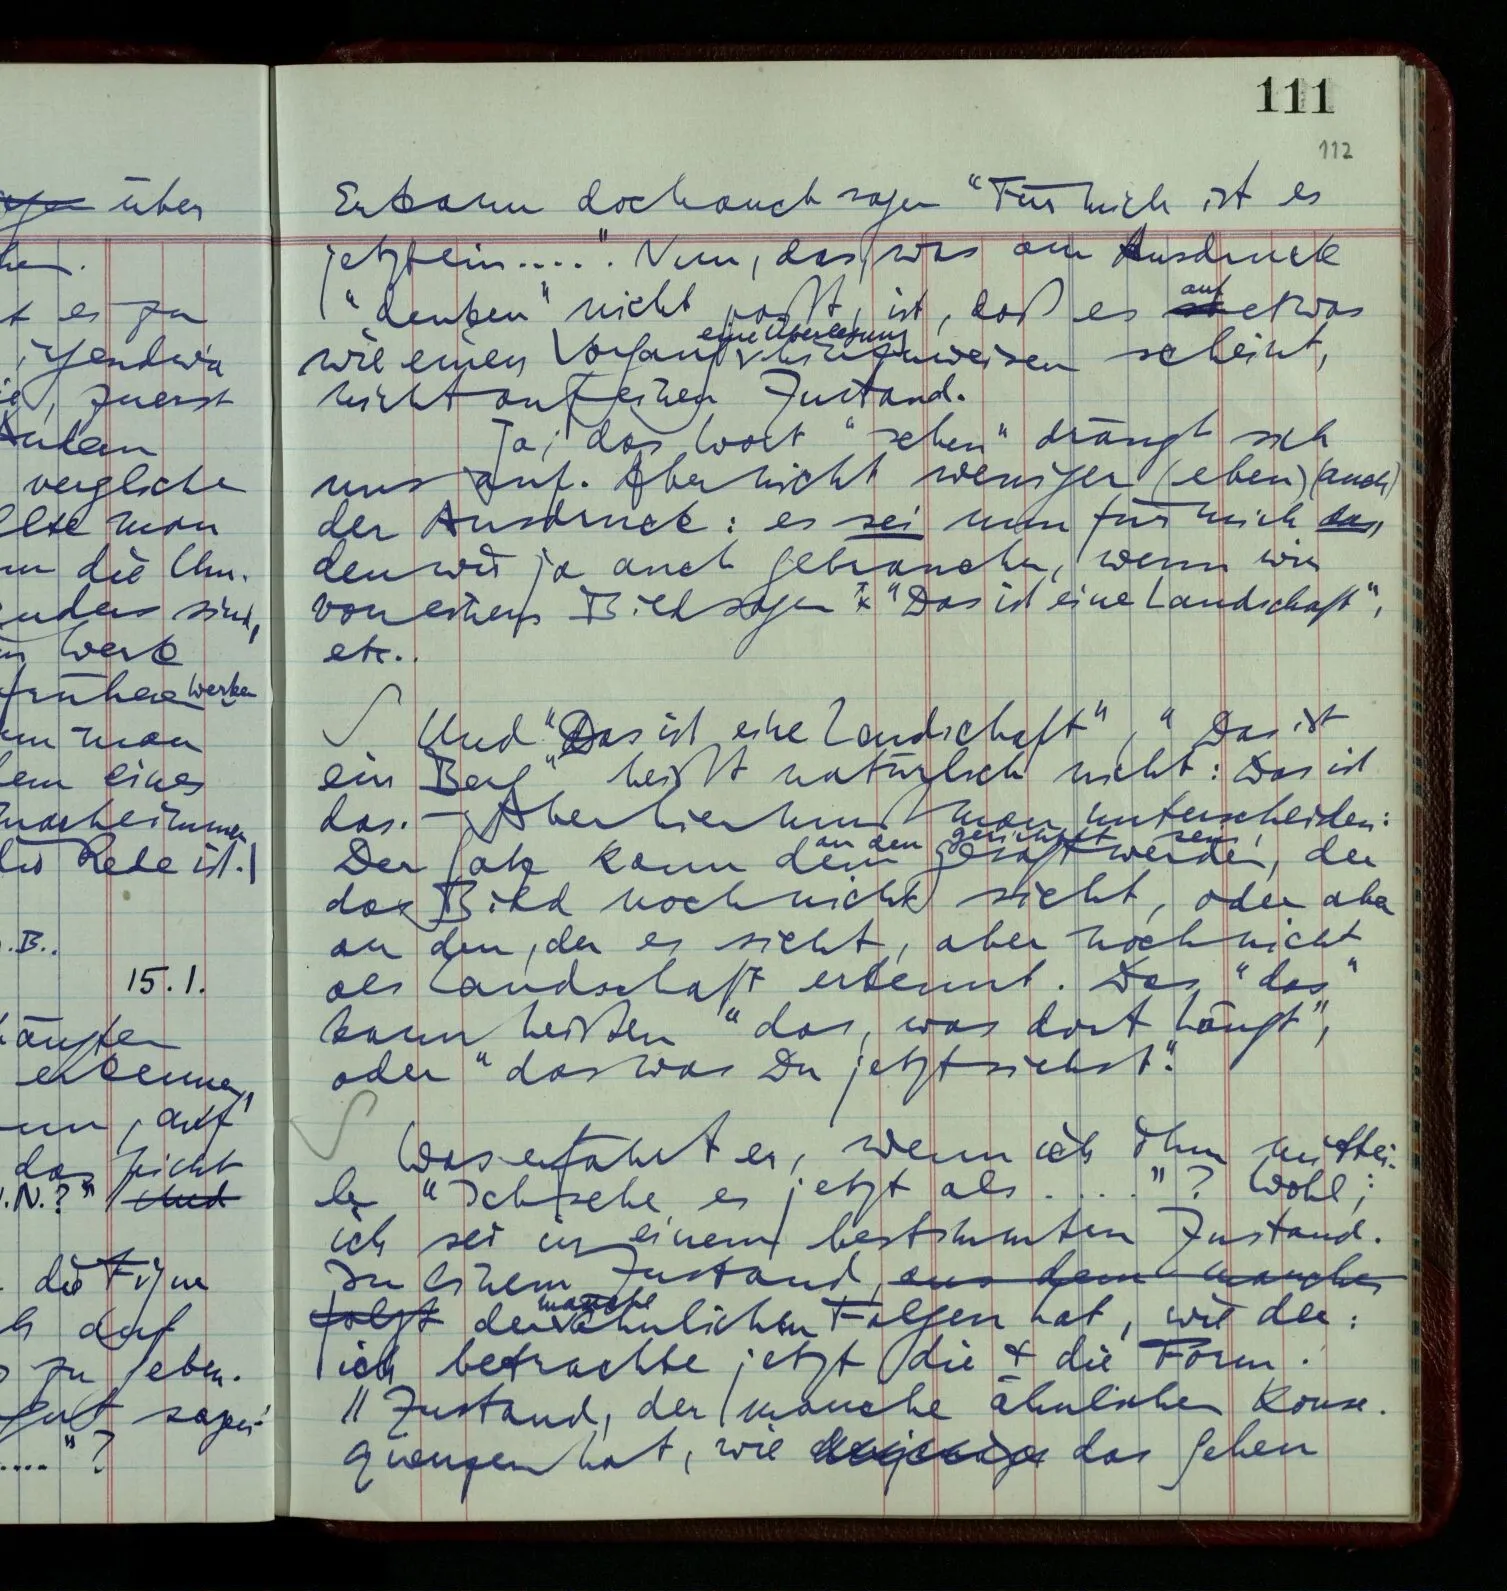 über
hen.
t es zu
irgendwie
zuerst
Andern
vergliche
llte man
die Um-
anders sind,
Werk
früheren Werken
man
eines
die Rede ist. |
z.B..
15.1.
erkennen,
, auf
das nicht
N.N.?" Und
die Figur
auf
zu sehen.
gut sagen:
...."?
111
112
Er kann doch auch sagen "Für mich ist es
jetzt ein....". Nun, das, was am Ausdruck
"denken" nicht paßt, ist, daß es auf etwas
wie einen Vorgang, eine Überlegung hinzuweisen scheint,
nicht auf einen Zustand.
Ja, das Wort "sehen" drängt sich
uns auf. Aber nicht weniger (eben) (auch)
der Ausdruck: es sei nun für mich das,
den wir ja auch gebrauchen, wenn wir
von einem Bild sagen "Das ist eine Landschaft",
etc..
∫ Und "Das ist eine Landschaft", "Das ist
ein Berg" heißt natürlich nicht: Das ist
das. – Aber hier muß man unterscheiden:
an den gerichtet sein,
Der Satz kann dem gesagt werden, der
das Bild noch nicht sieht, oder aber
an den, der es sieht, aber noch nicht
als Landschaft erkennt. Das "das"
kann heißen "das, was dort hängt",
oder "das was Du jetzt siehst".
∫ Was erfährt er, wenn ich ihm mittei-
le "Ich sehe es jetzt als ...."? Wohl;
ich sei in einem bestimmten Zustand.
In einem Zustand, aus dem manches
folgt der manche ähnlichen Folgen hat, wie der:
ich betrachte jetzt die & die Form.
|| Zustand, der manche ähnlichen Konse-
quenzen hat, wie derjenige das Sehen